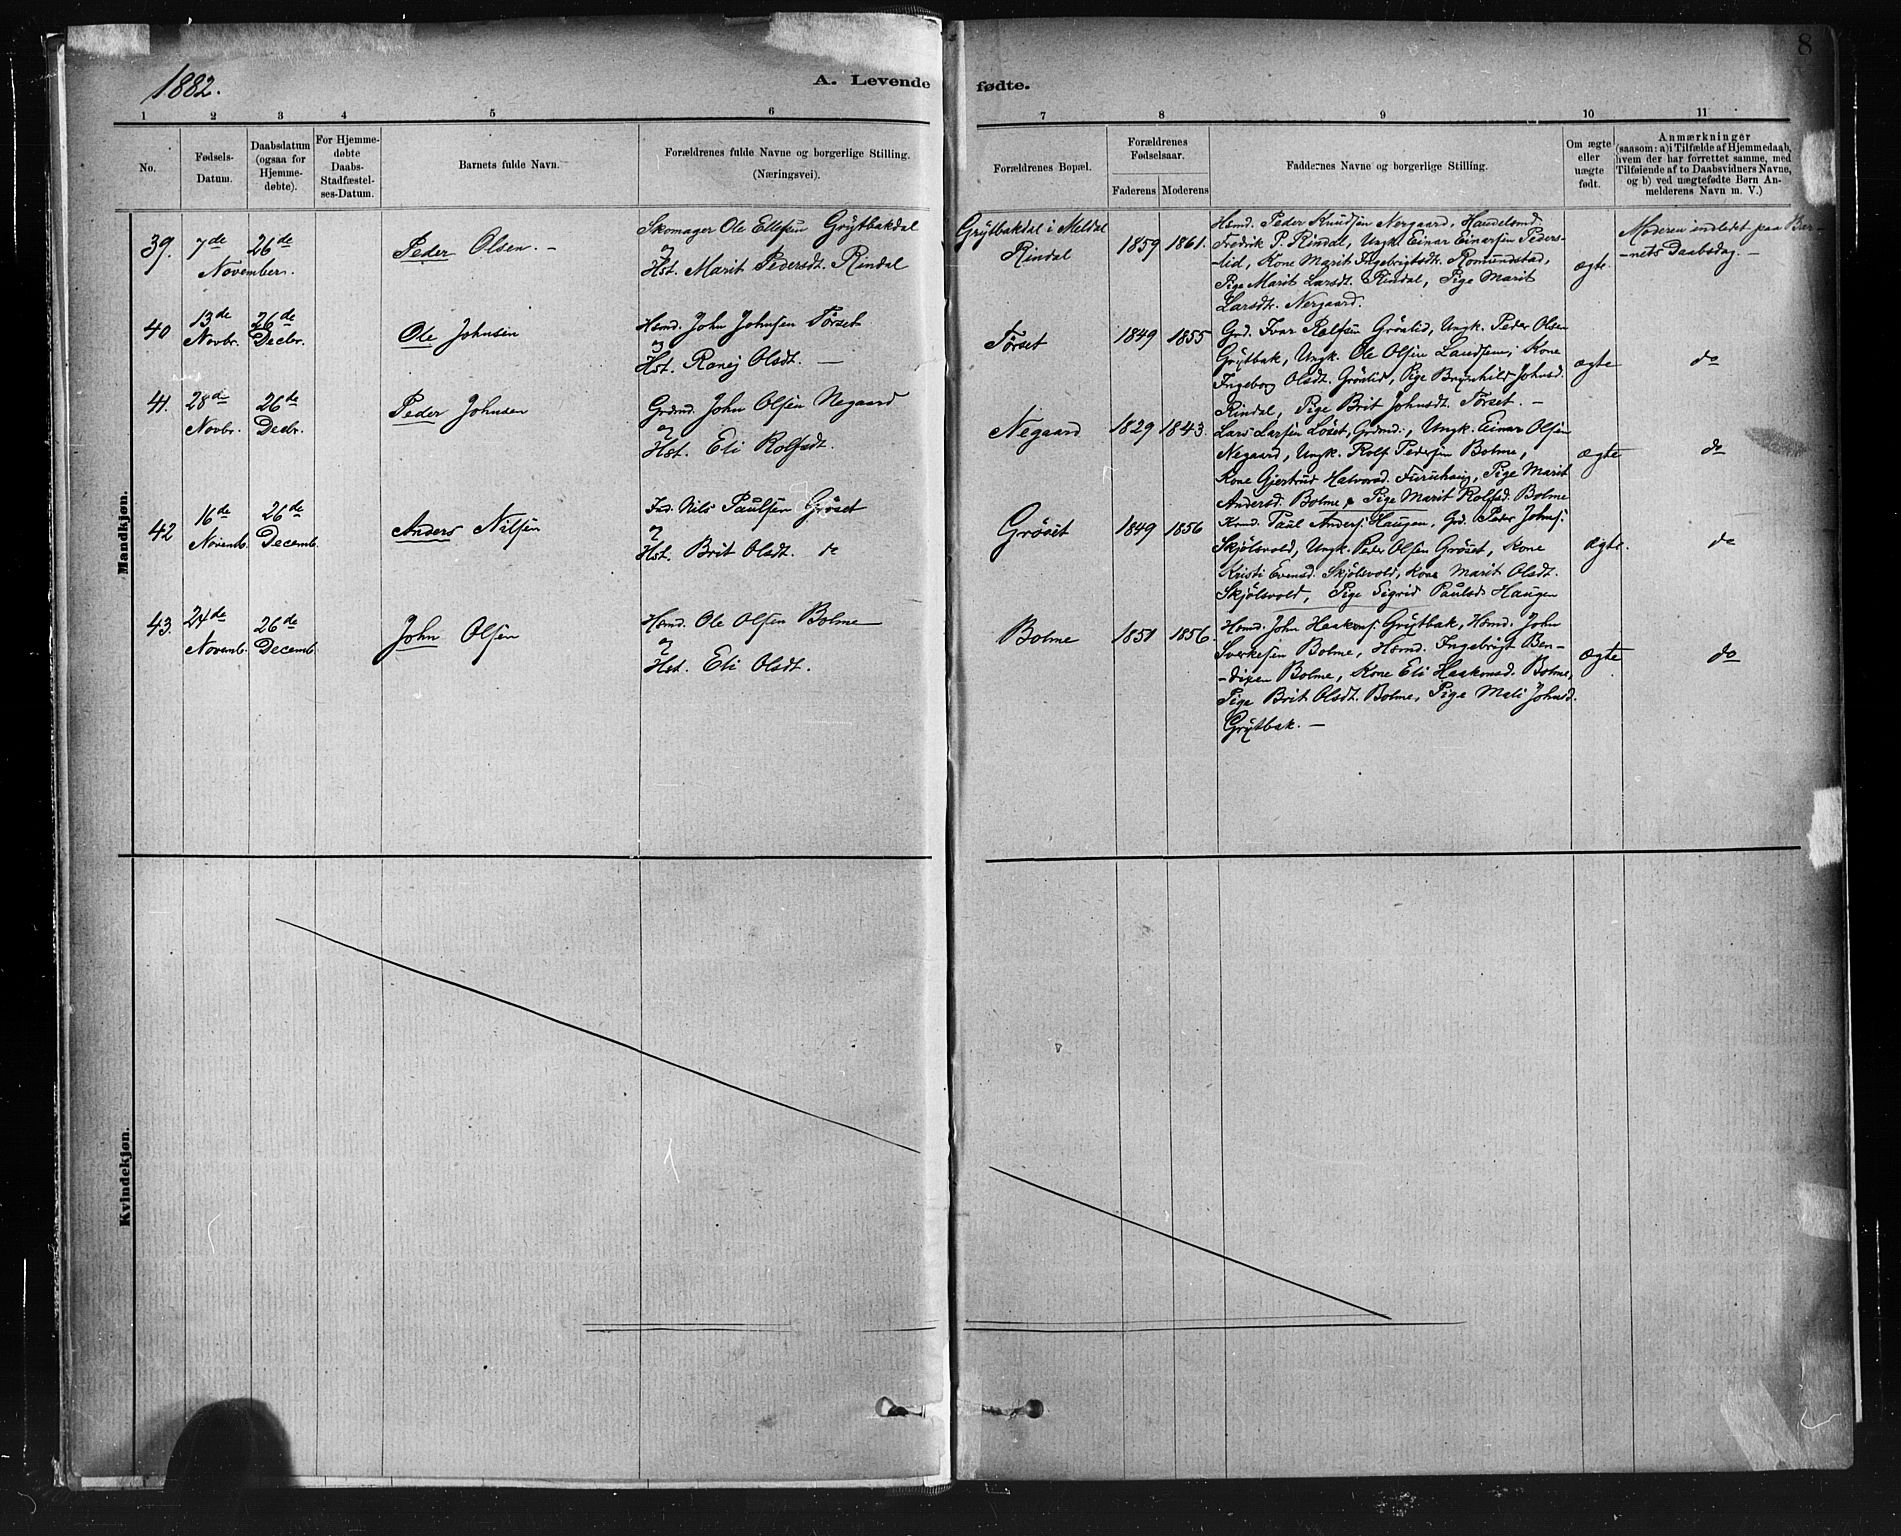 8
1882.
A. Levende fødte.
1 2 3 4 5 6 7 8 9 10 11
No.
Fødsels-
Datum.
Daabsdatum
(ogsaa for
Hjemme-
døbte).
For Hjemme-
døbte
Daabs-
Stadfæstel-
ses-Datum.
Barnets fulde Navn.
Forældrenes fulde Navne og borgerlige Stilling.
(Næringsvei).
Forældrenes Bopæl.
Forældrenes
Fødselsaar.
Faderens Moderens
Faddernes Navne og borgerlige Stilling.
Om ægte
eller
uægte
født.
Anmærkninger
(saasom: a) i Tilfælde af Hjemmedaab,
hvem der har forrettet samme, med
Tilføiende af to Daabsvidners Navne,
og b) ved uægtefødte Børn An-
melderens Navn m. V.)
Mandkjøn.
39. 7de November. 26de
Peder Olsen. -
Skomager Ole Ellefsen Grytbakdal
og
Hst. Marit Pedersdt. Rindal
Grytbakdal i Meldal
Rindal
1859 1861.
Hsmd. Peder Knudsen Nergaard, Handelsmd.
Fredrik P. Rindal, Ungk. Einar Einersen Peders-
-lid, Kone Marit Ingebrigtsdt. Romundstad,
Pige Marit Larsdt. Rindal, Pige Marit
Larsdt. Nergaard.
ægte.
Moderen indledet paa Bar-
-nets Daabsdag. -
40 13de Novbr. 26de Decbr.
Ole Johnsen
Hsmd. John Johnsen Tørset
og
Hst. Ranej Olsdt. -
Tørset
1849 1855
Grd. Ivar Rolfsen Grønlid, Ungk. Peder Olsen
Grytbak, Ungk. Ole Olsen Landsem, Kone
Ingeborg Olsdt. Grønlid, Pige Brynhild Johnsd.
Rindal, Pige Brit Johnsdt. Tørset. -
ægte
do
41. 28de Novbr. 26de Decbr.
Peder Johnsen
Grdmd. John Olsen Negaard
og
Hst. Eli Rolfsdt.
Negaard
1829 1843.
Lars Larsen Løset, Grdmd., Ungk. Einar Olsen
Negaard, Ungk. Rolf Pedersen Bolme,
Kone Gjertrud Halvorsd. Furuhaug, Pige Marit
Andersd. Bolme, Pige Marit Rolfsd. Bolme
ægte
do
42 16de Novemb. 26de Decemb.
Anders Nilsen
Ind. Nils Paulsen Grøset
og
Hst. Brit Olsdt. do
Grøset
1849 1856
Hsmd. Paul Anders. Haugen, Grd. Peder Johns.
Skjølsvold, Ungk. Peder Olsen Grøset, Kone
Kristi Evensd. Skjølsvold, Kone Marit Olsdt.
Skjølsvold, Pige Sigrid Paulsd. Haugen
Ægte.
do
43. 24de Novemb. 26de Decemb.
John Olsen
Hsmd. Ole Olsen Bolme
og
Hst. Eli Olsdt.
Bolme
1851 1856.
Hsmd. John Haakens. Grytbak, Hsmd. John
Sverkesen Bolme, Hsmd. Ingebrigt Ben-
-dixen Bolme, Kone Eli Haakonsd. Bolme,
Pige Brit Olsdt. Bolme, Pige Mali Johnsd.
Grytbak. -
Ægte
do
Kvindekjøn.